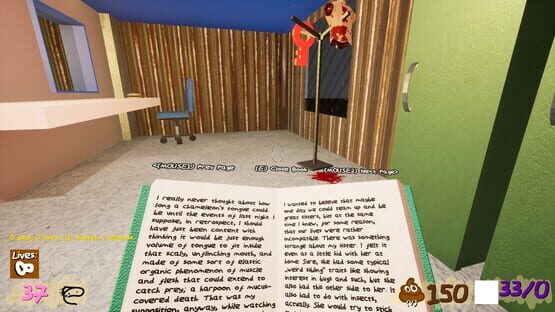 <(MOUSE2) Prev Page
(E) Close Book
(MOUSE1) Next Page>
I really never thought about how
long a chameleon's tongue could
be until the events of last night. I
suppose, in retrospect, I should
have just been content with
thinking it would be just enough
volume of tongue to fit inside
that scaly, unflinching mouth, and
made of some sort of elastic
organic phenomenon of muscle
and flesh that could extend to
catch prey, a harpoon of mucus-
covered death. That was my
supposition, anyway, while watching
I wanted to believe that maybe
one day we could team up and be
great sisters, but at the same
time I knew, for some reason,
that our lives were rather
incompatible. There was something
strange about my sister. I felt it
even as a little kid with her at
home. Sure, she had some typical
interest in bugs and such, but she
also had this other side to her. It
also had to do with insects,
actually. She would try to stick
Lives:
37
150
33/0